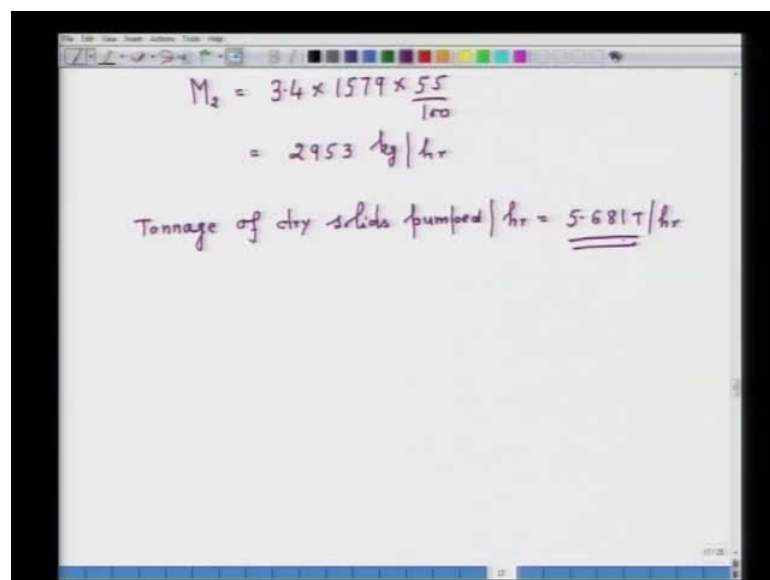 File Edit View Insert Actions Tools Help
M₂ = 3.4 × 1579 × 55/100
= 2953 kg/hr
Tonnage of dry solids pumped/hr = 5.681T/hr